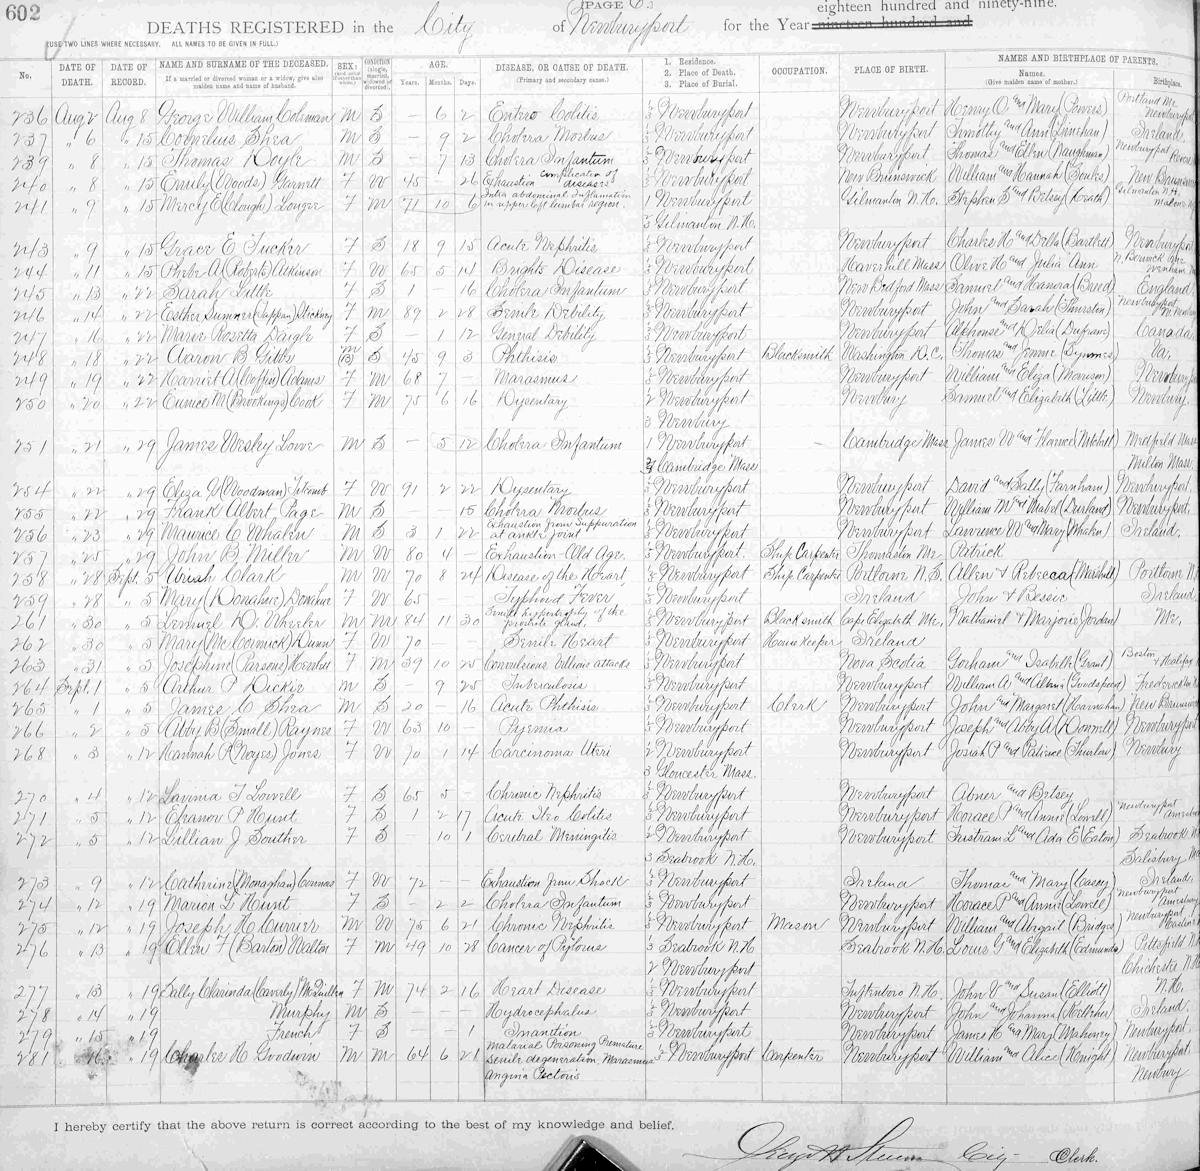 602
[PAGE 6.]
eighteen hundred and ninety-nine.
DEATHS REGISTERED in the City of Newburyport for the Year nineteen hundred and
(USE TWO LINES WHERE NECESSARY. ALL NAMES TO BE GIVEN IN FULL.)
No. DATE OF DEATH. DATE OF RECORD. NAME AND SURNAME OF THE DECEASED. If a married or divorced woman or a widow, give also maiden name and name of husband. SEX: CONDITION AGE. Years. Months. Days. DISEASE, OR CAUSE OF DEATH. (Primary and secondary cause.) 1. Residence. 2. Place of Death. 3. Place of Burial. OCCUPATION. PLACE OF BIRTH. NAMES AND BIRTHPLACE OF PARENTS. Names. (Give maiden name of mother.) Birthplace.
236 Aug 2 Aug 8 George William Coleman M S - 6 2 Entero Colitis Newburyport Newburyport Henry O. and Mary (Powers) Portland Me. Newburyport
237 " 6 " 15 Cornelius Shea M S - 9 2 Cholera Morbus Newburyport Newburyport Timothy and Ann (Linehan) Ireland
239 " 8 " 15 Thomas Doyle M S - 7 13 Cholera Infantum Newburyport Newburyport Thomas and Ellen (Naughman) Newburyport
240 " 8 " 15 Emily (Woods) Garnett F W 45 - 26 Exhaustion complication of diseases Newburyport New Brunswick William and Hannah New Brunswick
241 " 9 " 15 Mercy E (Clough) F M 71 10 6 Intra abdominal inflamation in upper left lumbar region. 1 Newburyport Gilmanton N.H. Stephen S and Betsey (Heath) Gilmanton N.H.
3 Gilmanton N.H.
243 " 9 " 15 Grace E Tucker F S 18 9 15 Acute Nephritis Newburyport Newburyport Charles H and Della (Bartlett) Newburyport
244 " 11 " 15 Phebe A (Roberts) Atkinson F W 65 5 14 Brights Disease Newburyport Haverhill Mass Olive H and Julia Ann N. Berwick Me
245 " 13 " 22 Sarah Little F S 1 - 16 Cholera Infantum Newburyport New Bedford Mass Samuel and Hanora (Breed) England
246 " 14 " 22 Esther Sumner (Tappan) Stickney F W 89 2 28 Senile Debility Newburyport Newburyport John and Sarah (Thurston) Newburyport
247 " 16 " 22 Marie Rosetta Daigle F S - 1 12 General Debility Newburyport Newburyport Alphonse and Delia Canada
248 " 18 " 22 Aaron B Gibbs M (B) S 45 9 3 Phthisis Newburyport Blacksmith Washington D.C. Thomas and Jennie (Symmes) Va.
249 " 19 " 22 Harriet A (Coffin) Adams F M 68 7 - Marasmus Newburyport Newburyport William and Eliza (Morrison) Newburyport
250 " 20 " 22 Eunice M (Brookings) Cook F M 75 6 16 Dysentary Newburyport Newbury Samuel and Elizabeth (Little) Newbury
3 Newbury
251 " 21 " 29 James Wesley Lowe M S - 5 12 Cholera Infantum 1 Newburyport Cambridge Mass James W and Florence (Mitchell) Medfield Mass
Cambridge Mass Milton Mass
254 " 22 " 29 Eliza G (Woodman) Titcomb F W 91 2 22 Dysentary Newburyport Newburyport David and Sally (Farnham) Newburyport
255 " 22 " 29 Frank Albert Page M S 15 Cholera Morbus Newburyport Newburyport William M and Mabel (Durland) Newburyport.
256 " 23 " 29 Maurice C Whalen M S 3 1 22 Exhaustion from Suppuration at ankle joint Newburyport Newburyport Lawrence W and Mary (Whalen) Ireland.
257 " 25 " 29 John B Miller M W 80 4 - Exhaustion Old Age. Newburyport. Ship Carpenter Thomaston Me Patrick
258 " 28 Sept. 5 Uriah Clark M W 70 8 24 Disease of the Heart Newburyport Ship Carpenter Allen & Rebecca (Marshall)
259 " 28 " 5 Mary (Donahue) Donahue F W 65 - Typhoid Fever Newburyport Ireland John & Bessie Ireland
261 " 30 " 5 Lemuel D. Wheeler M M 84 11 30 Senile hypertrophy of the prostate gland. Newburyport Blacksmith Cape Elizabeth Me. Nathaniel & Marjorie (Jordan) Me.
262 " 30 " 5 Mary (McCormick) Dunn F W 70 - Senile Heart Newburyport House Keeper Ireland
263 " 31 " 5 Josephine (Parsons) F M 39 10 25 Convulsions, attacks Newburyport Nova Scotia Gorham and Isabella (Grant) Boston & Halifax
264 Sept. 1 " 5 Arthur P Dickie M S - 9 25 Tuberculosis Newburyport Newburyport William A. and Alena (Goodspeed) Frederickton
265 " 1 " 5 James C Shea M S 20 - 16 Acute Phthisis Newburyport Clerk Newburyport John and Margaret (Hannahan) New Brunswick
266 " 2 " 5 Abby B (Small) Raynes F W 63 10 Pyemia Newburyport Newburyport Joseph and Abby A (Donnell) Newburyport
268 " 3 " 12 Hannah R (Noyes) Jones F W 70 1 14 Carcinoma Uteri 2 Newburyport Newburyport Josiah P and Patience (Thurlow) Newbury
3 Gloucester Mass.
270 " 4 " 12 Lavinia T Lowell F S 65 5 - Chronic Nephritis Newburyport Newburyport Abner and Betsey
271 " 5 " 12 Eleanor P Hunt F S 1 2 17 Acute Ileo Colitis Newburyport Newburyport Horace P and Annie (Lowell) Newburyport
272 " 5 " 12 Lillian J Souther F S - 10 1 Cerebral Meningitis 2 Newburyport Newburyport Tristram L and Ada E (Eaton) Seabrook N.H.
3 Seabrook N.H. Salisbury
273 " 9 " 12 Catherine (Monaghan) Connors F W 72 - Exhaustion from Shock Newburyport Ireland Thomas and Mary (Casey) Ireland
274 " 12 " 19 Marion L Hunt F S - 2 2 Cholera Infantum Newburyport Newburyport Horace P and Annie (Lowell) Newburyport
275 " 12 " 19 Joseph H Currier M W 75 6 21 Chronic Nephritis Newburyport Mason Newburyport William and Abigail (Bridges) Newburyport
276 " 13 " 19 Ellen F (Barton) Walton F M 49 10 28 Cancer of Pylorus 3 Seabrook N.H Seabrook N.H. Louis G and Elizabeth (Edmunds) Pittsfield N.H.
2 Newburyport Chichester N.H.
277 " 13 " 19 Sally Clarinda (Caverly) McQuillen F M 74 2 16 Heart Disease Newburyport Tuftonboro N.H. John V and Susan (Elliott) N.H.
278 " 14 " 19 Murphy M S - Hydrocephalus Newburyport Newburyport John and Johanna (Kelleher) Ireland
279 " 15 " 19 French F S - - 1 Inanition Newburyport Newburyport James H and Mary (Mahoney) Newburyport
281 " 16 " 19 Charles H Goodwin M M 64 6 21 Malarial Poisoning Premature senile degeneration. Marasmus Angina Pectoris Newburyport Carpenter Newburyport William and Alice (Knight) Newburyport
Newbury
I hereby certify that the above return is correct according to the best of my knowledge and belief.
City Clerk.